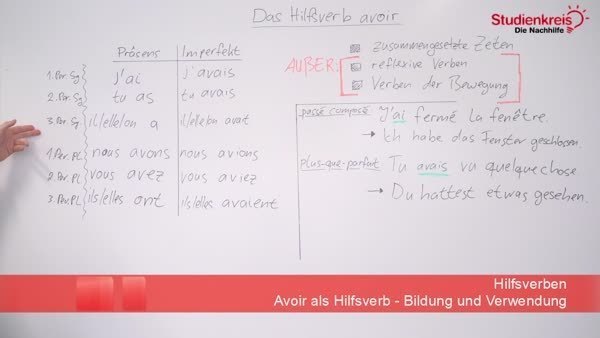 Das Hilfsverb avoir
Studienkreis
Die Nachhilfe
Präsens Imperfekt
1. Per. Sg j'ai j'avais
2. Per. Sg tu as tu avais
3. Per. Sg il/elle/on a il/elle/on avait
1. Per. Pl. nous avons nous avions
2. Per. Pl. vous avez vous aviez
3. Per. Pl. ils/elles ont ils/elles avaient
zusammengesetzte Zeiten
AUẞER:
reflexive Verben
Verben der Bewegung
passé composé J'ai fermé la fenêtre.
→ Ich habe das Fenster geschlossen.
plus-que-parfait Tu avais vu quelque chose
→ Du hattest etwas gesehen.
Hilfsverben
Avoir als Hilfsverb - Bildung und Verwendung